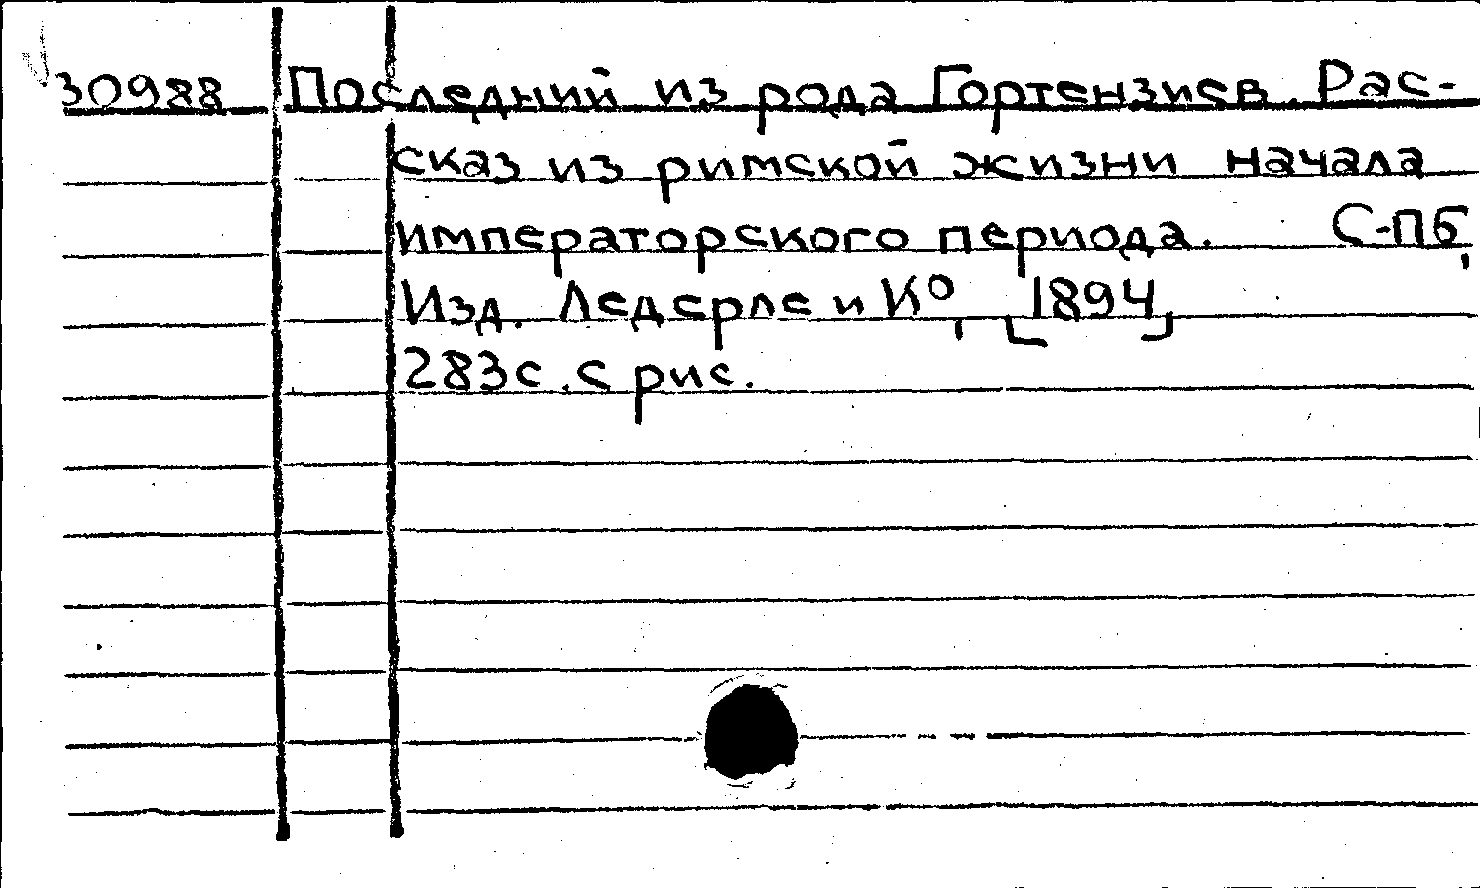 30988 Последний из рода Гортензиев. Рас-
сказ из римской жизни начала
императорского периода. С-Пб,
Изд. Ледерле и К°, [1894]
283с. с рис.